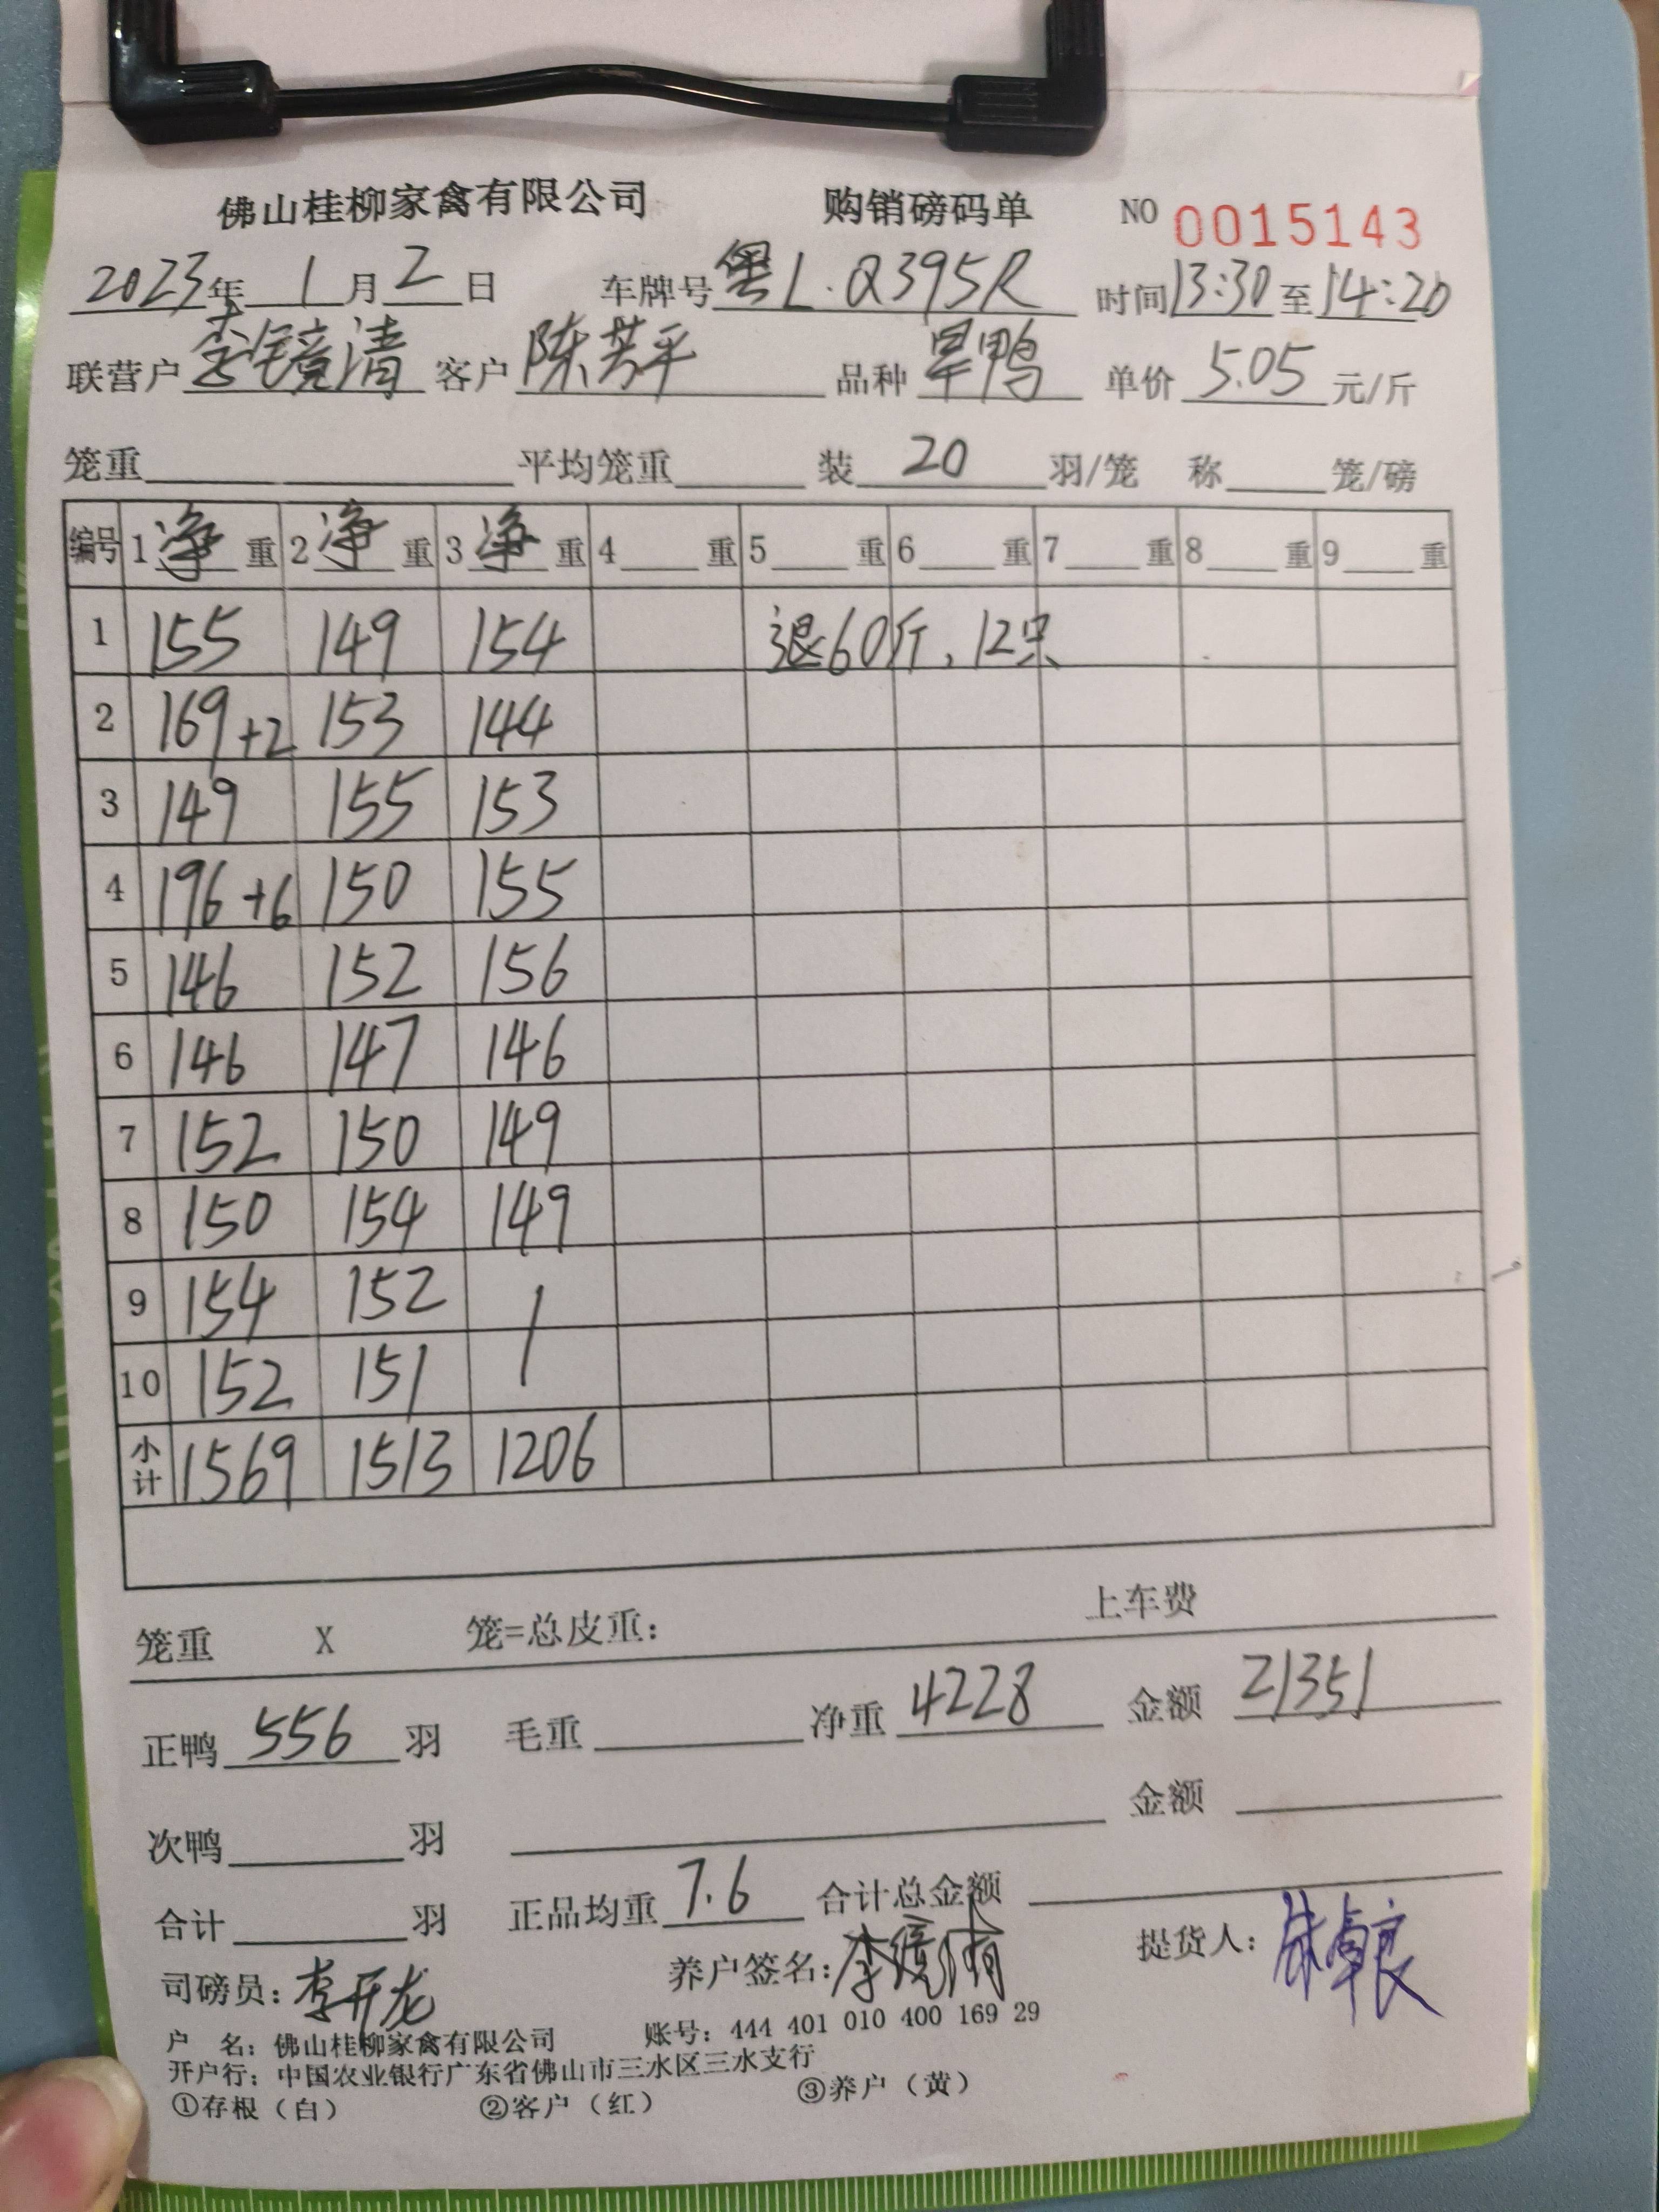 佛山桂柳家禽有限公司 购销磅码单 NO 0015143
2023年 1 月 2 日 车牌号 粤L·Q395R 时间 13:30 至 14:20
联营户 李镜清 客户 陈芳平 品种 旱鸭 单价 5.05 元/斤
笼重 平均笼重 装 20 羽/笼 称 笼/磅
编号 1 净 重 2 净 重 3 净 重 4 重 5 重 6 重 7 重 8 重 9 重
1 155 149 154 退60斤,12只
2 169+2 153 144
3 149 155 153
4 196+6 150 155
5 146 152 156
6 146 147 146
7 152 150 149
8 150 154 149
9 154 152 /
10 152 151
小计 1569 1513 1206
笼重 X 笼=总皮重: 上车费
正鸭 556 羽 毛重 净重 4228 金额 21351
次鸭 羽 金额
合计 羽 正品均重 7.6 合计总金额
司磅员: 李开龙 养户签名: 李镜清 提货人:
户 名: 佛山桂柳家禽有限公司 账号: 444 401 010 400 169 29
开户行: 中国农业银行广东省佛山市三水区三水支行
①存根(白) ②客户(红) ③养户(黄)